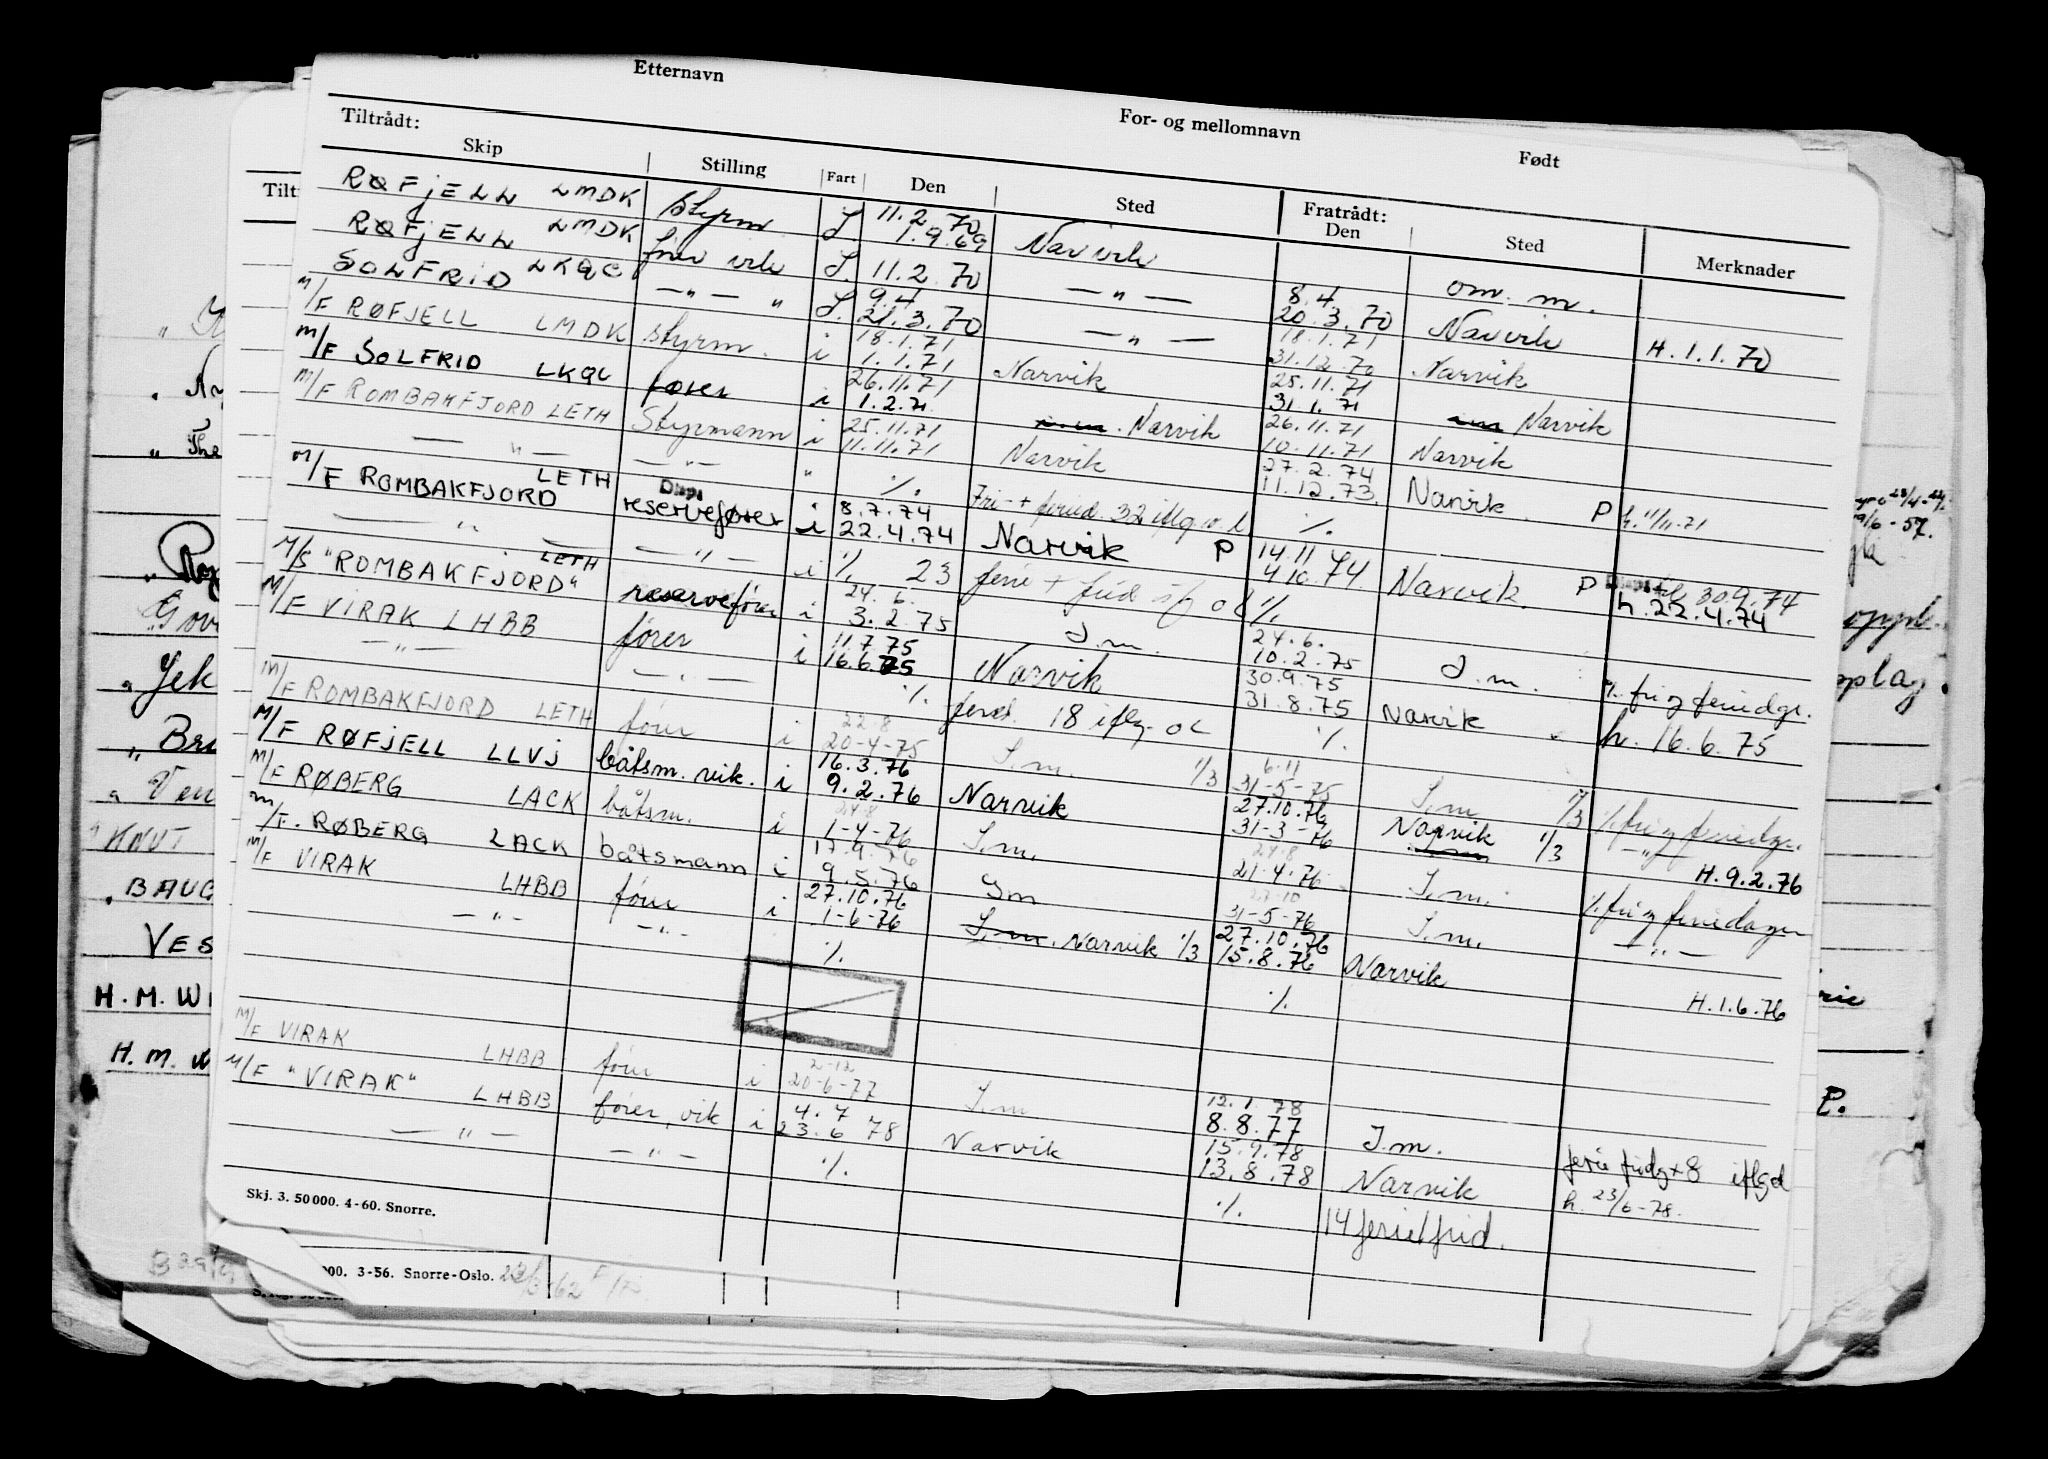 Etternavn
For- og mellomnavn
Født
Tiltrådt:
Fratrådt:
Skip Stilling Fart Den Sted Den Sted Merknader
RØFJELL LMDK styrm. I. 11.2.70 1.9.69 Narvik om. m.
RØFJELL LMDK fører vik I. 11.2.70 — " — 8.4. 20.3.70 Narvik H.1.1.70
SOLFRID LKQC — " — " I. 9.4 21.3.70 — " — 18.1.71 31.12.70 Narvik
M/F RØFJELL LMDK styrm. i 18.1.71 1.1.71 Narvik 25.11.71 31.1.71 Narvik
M/F SOLFRID LKQC fører i 26.11.71 1.2.71 Narvik 26.11.71 10.11.71 Narvik
M/F ROMBAKFJORD LETH Styrmann i 25.11.71 11.11.71 Narvik 27.2.74 11.12.73. Narvik. P h. 11/11.71
— " — — " — " ./. Fri- + feried. 32 iflg. o.l. ./.
M/F ROMBAKFJORD LETH Disp. reservefører i 8.7.74 22.4.74 Narvik P 14.11 4.10.74 Narvik. P Disp. 30.9.74 h.22.4.74
— " — — " — i ./. 23 ferie + frid. ./.
M/S "ROMBAKFJORD" LETH reservefører i 24.6. 3.2.75 I.m. 24.6. 10.2.75 I.m. ./. fri og feriedgr.
M/F VIRAK LHBB fører i 11.7.75 16.6.75 Narvik 30.9.75 31.8.75 Narvik h. 16.6.75
— " — — " — ./. feried. 18 iflg. ol ./.
M/F ROMBAKFJORD LETH fører i 22-8 20-4-75 I.m. 1/3 6-11 31-5-75 I.m. 1/3 ./. fri og feriedgr.
M/F RØFJELL LLVJ båtsm. vik. i 16.3.76 9.2.76 Narvik 27.10.76 31-3-76 Narvik 1/3 — " — H.9.2.76
M/F RØBERG LACK båtsm. i 24-8 1-4-76 I.m. 24-8 21-4-76 I.m. ./. fri og feriedager
M/F. RØBERG LACK båtsmann i 17.9.76 9.5.76 Im 27-10 31-5-76 I.m. — " —
M/F VIRAK LHBB fører i 27.10.76 1-6-76 I.m. Narvik 1/3 27.10.76 15.8.76 Narvik H.1.6.76
— " — — " — ./. ./.
M/F VIRAK LHBB fører i 2-12 20-6-77 I.m 12.1.78 8.8.77 I.m. ferie fridg + 8 iflg ol
M/F "VIRAK" LHBB fører, vik i 4.7 23.6 78 Narvik 15.9.78 13.8.78 Narvik h. 23/6-78.
— " — — " — ./. ./. 14 ferie/frid.
Skj. 3. 50 000. 4-60. Snorre.
000. 3-56. Snorre-Oslo.
Tilt
KNUT
BAUG
VES
H. M. WI
H. M.
Jek
Bru
P.